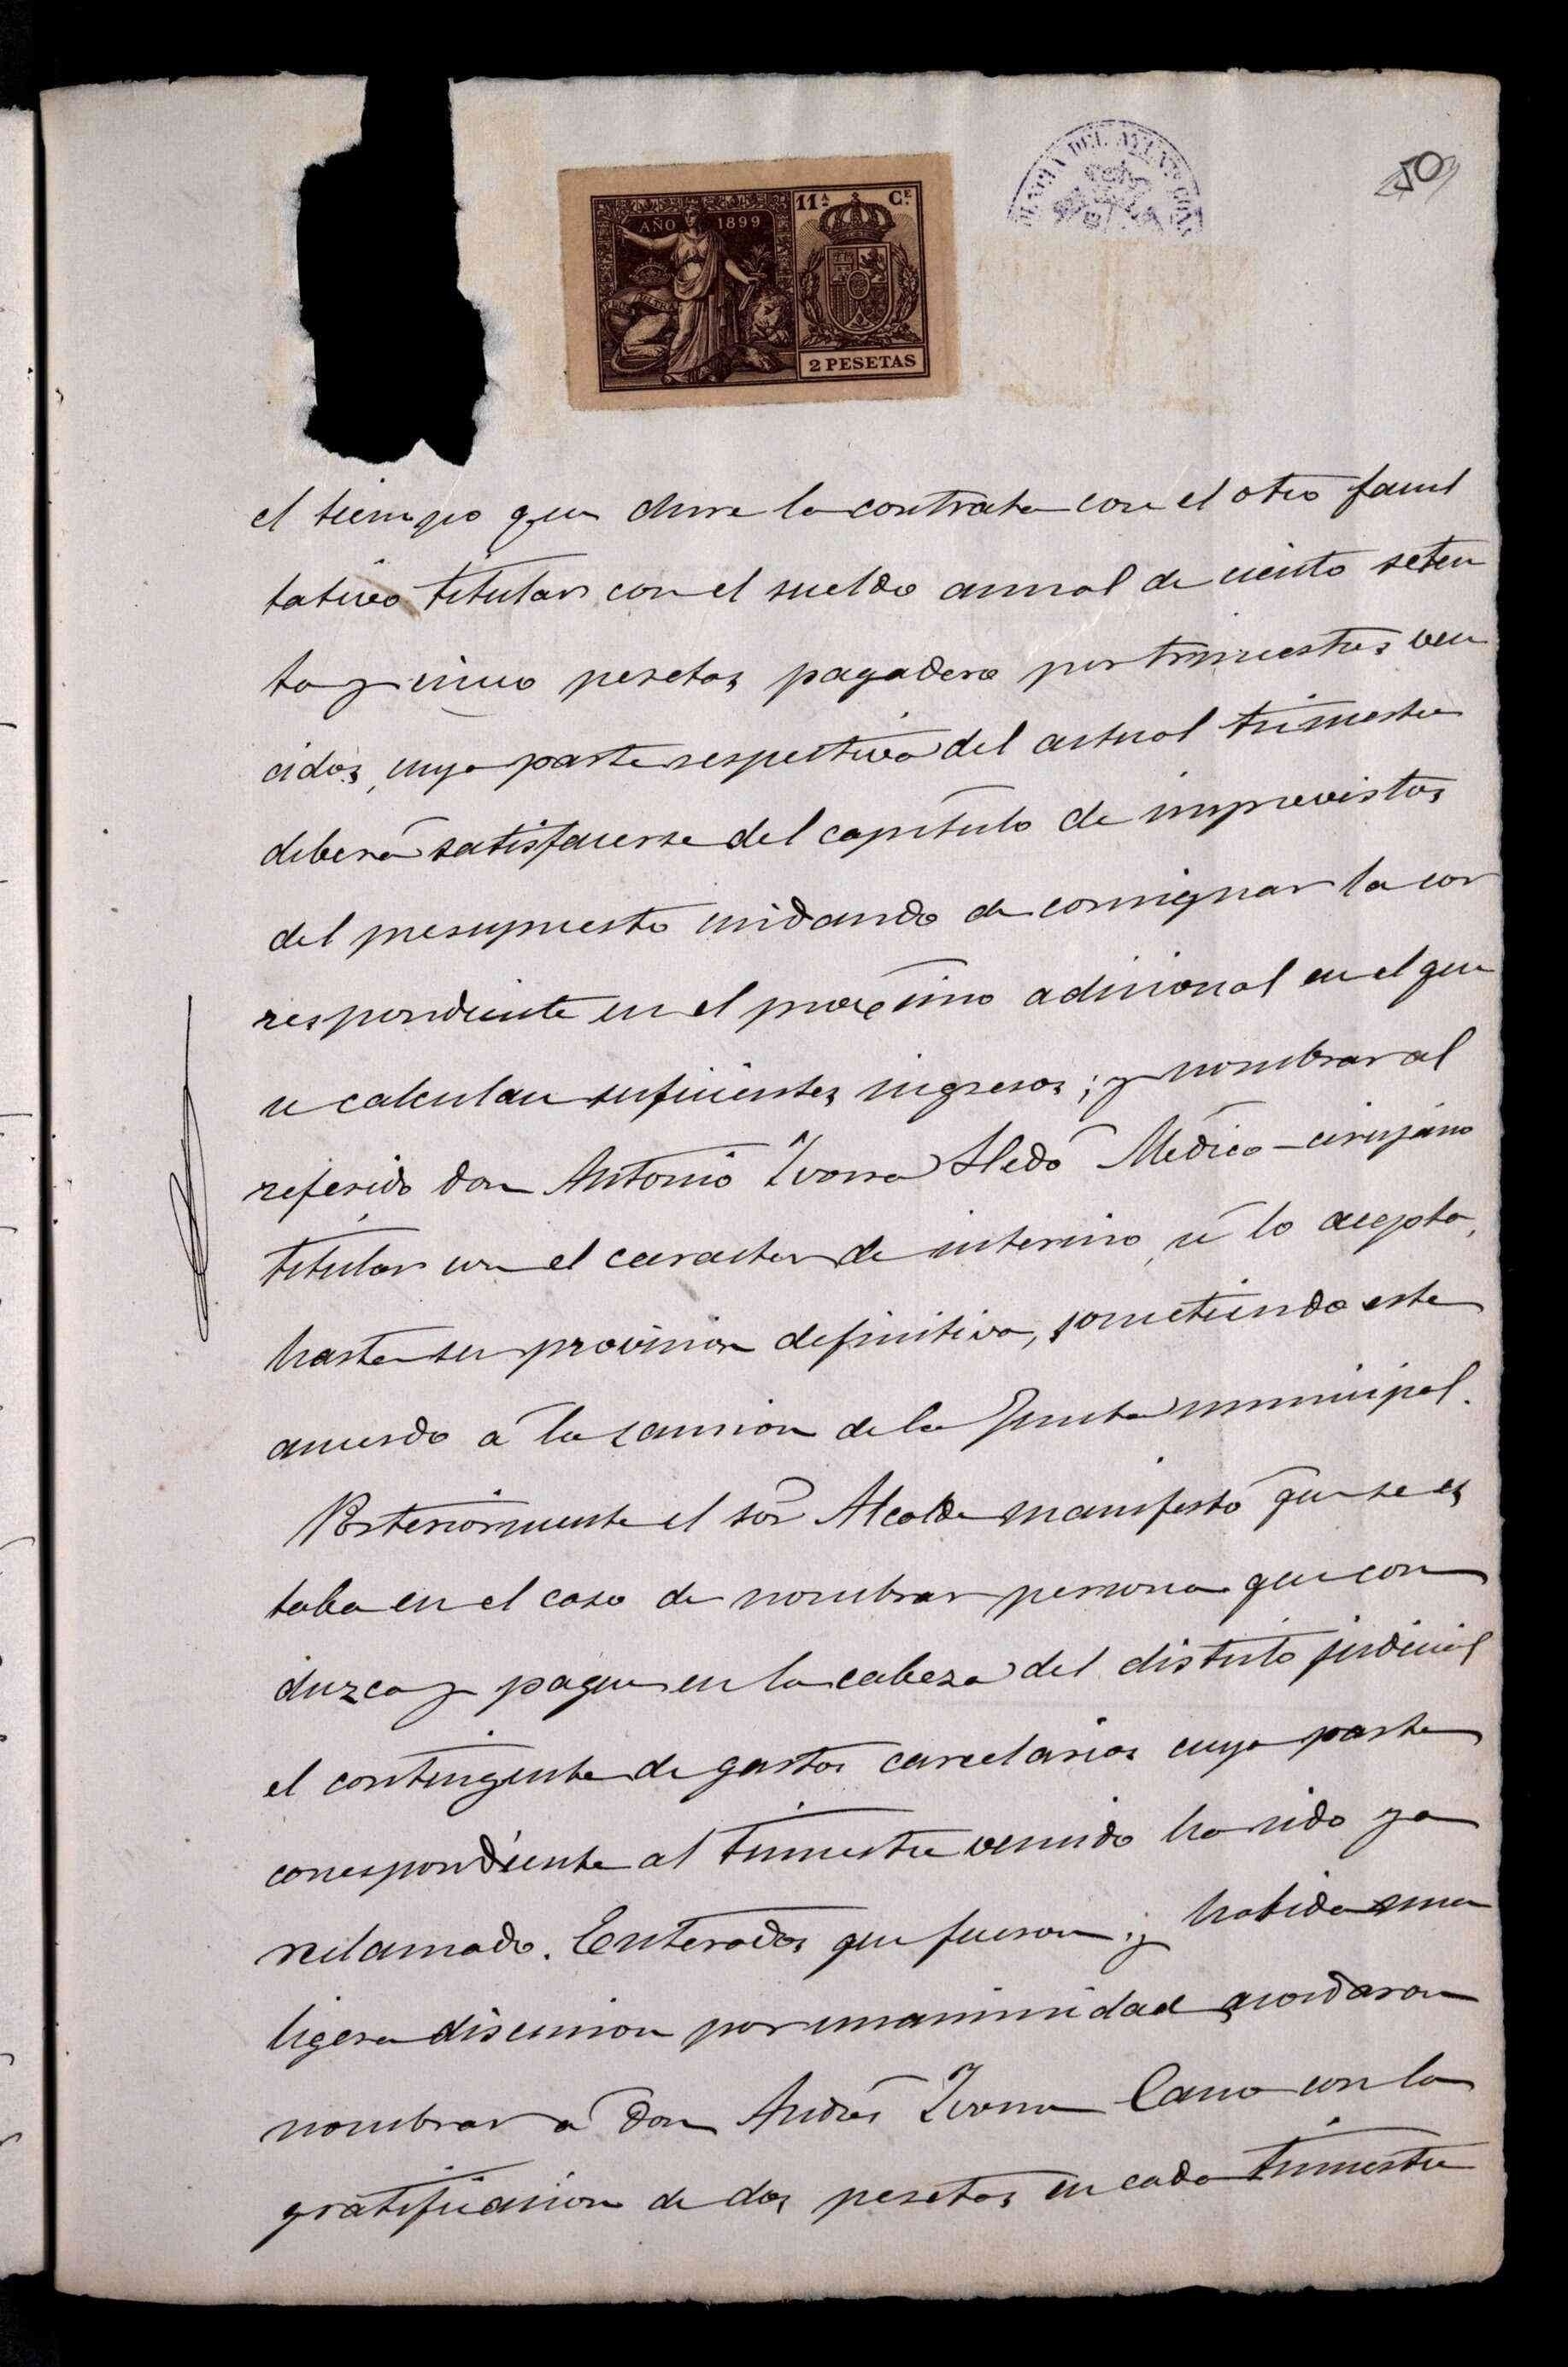 50
AÑO 1899
11ª Cᴱ.
2 PESETAS
DEL AYUNT
el tiempo que dure la contrata con el otro facul
tativo titular con el sueldo anual de ciento seten
ta y cinco pesetas pagadero por trimestres ven
cidos, cuya parte respectiva del actual trimestre
deberá satisfacerse del capítulo de imprevistos
del presupuesto cuidando de consignar la cor
respondiente en el proximo adicional en el que
se calculan suficientes ingresos; y nombrar al
referido don Antonio Ivorra Lledó Médico-cirujano
titular con el caracter de interino, si lo acepta,
hasta su provision definitiva, sometiendo este
acuerdo á la sancion de la Junta municipal.
Posteriormente el sor Alcalde manifestó que se es
taba en el caso de nombrar persona que con
duzca y pague en la cabeza del distrito judicial
el contingente de gastos carcelarios cuya parte
correspondiente al trimestre vencido ha sido ya
reclamado. Enterados que fueron; y habida una
ligera discusion por unanimidad acordaron
nombrar á don Andrés Ivorra Cano con la
gratificacion de dos pesetas en cada trimestre